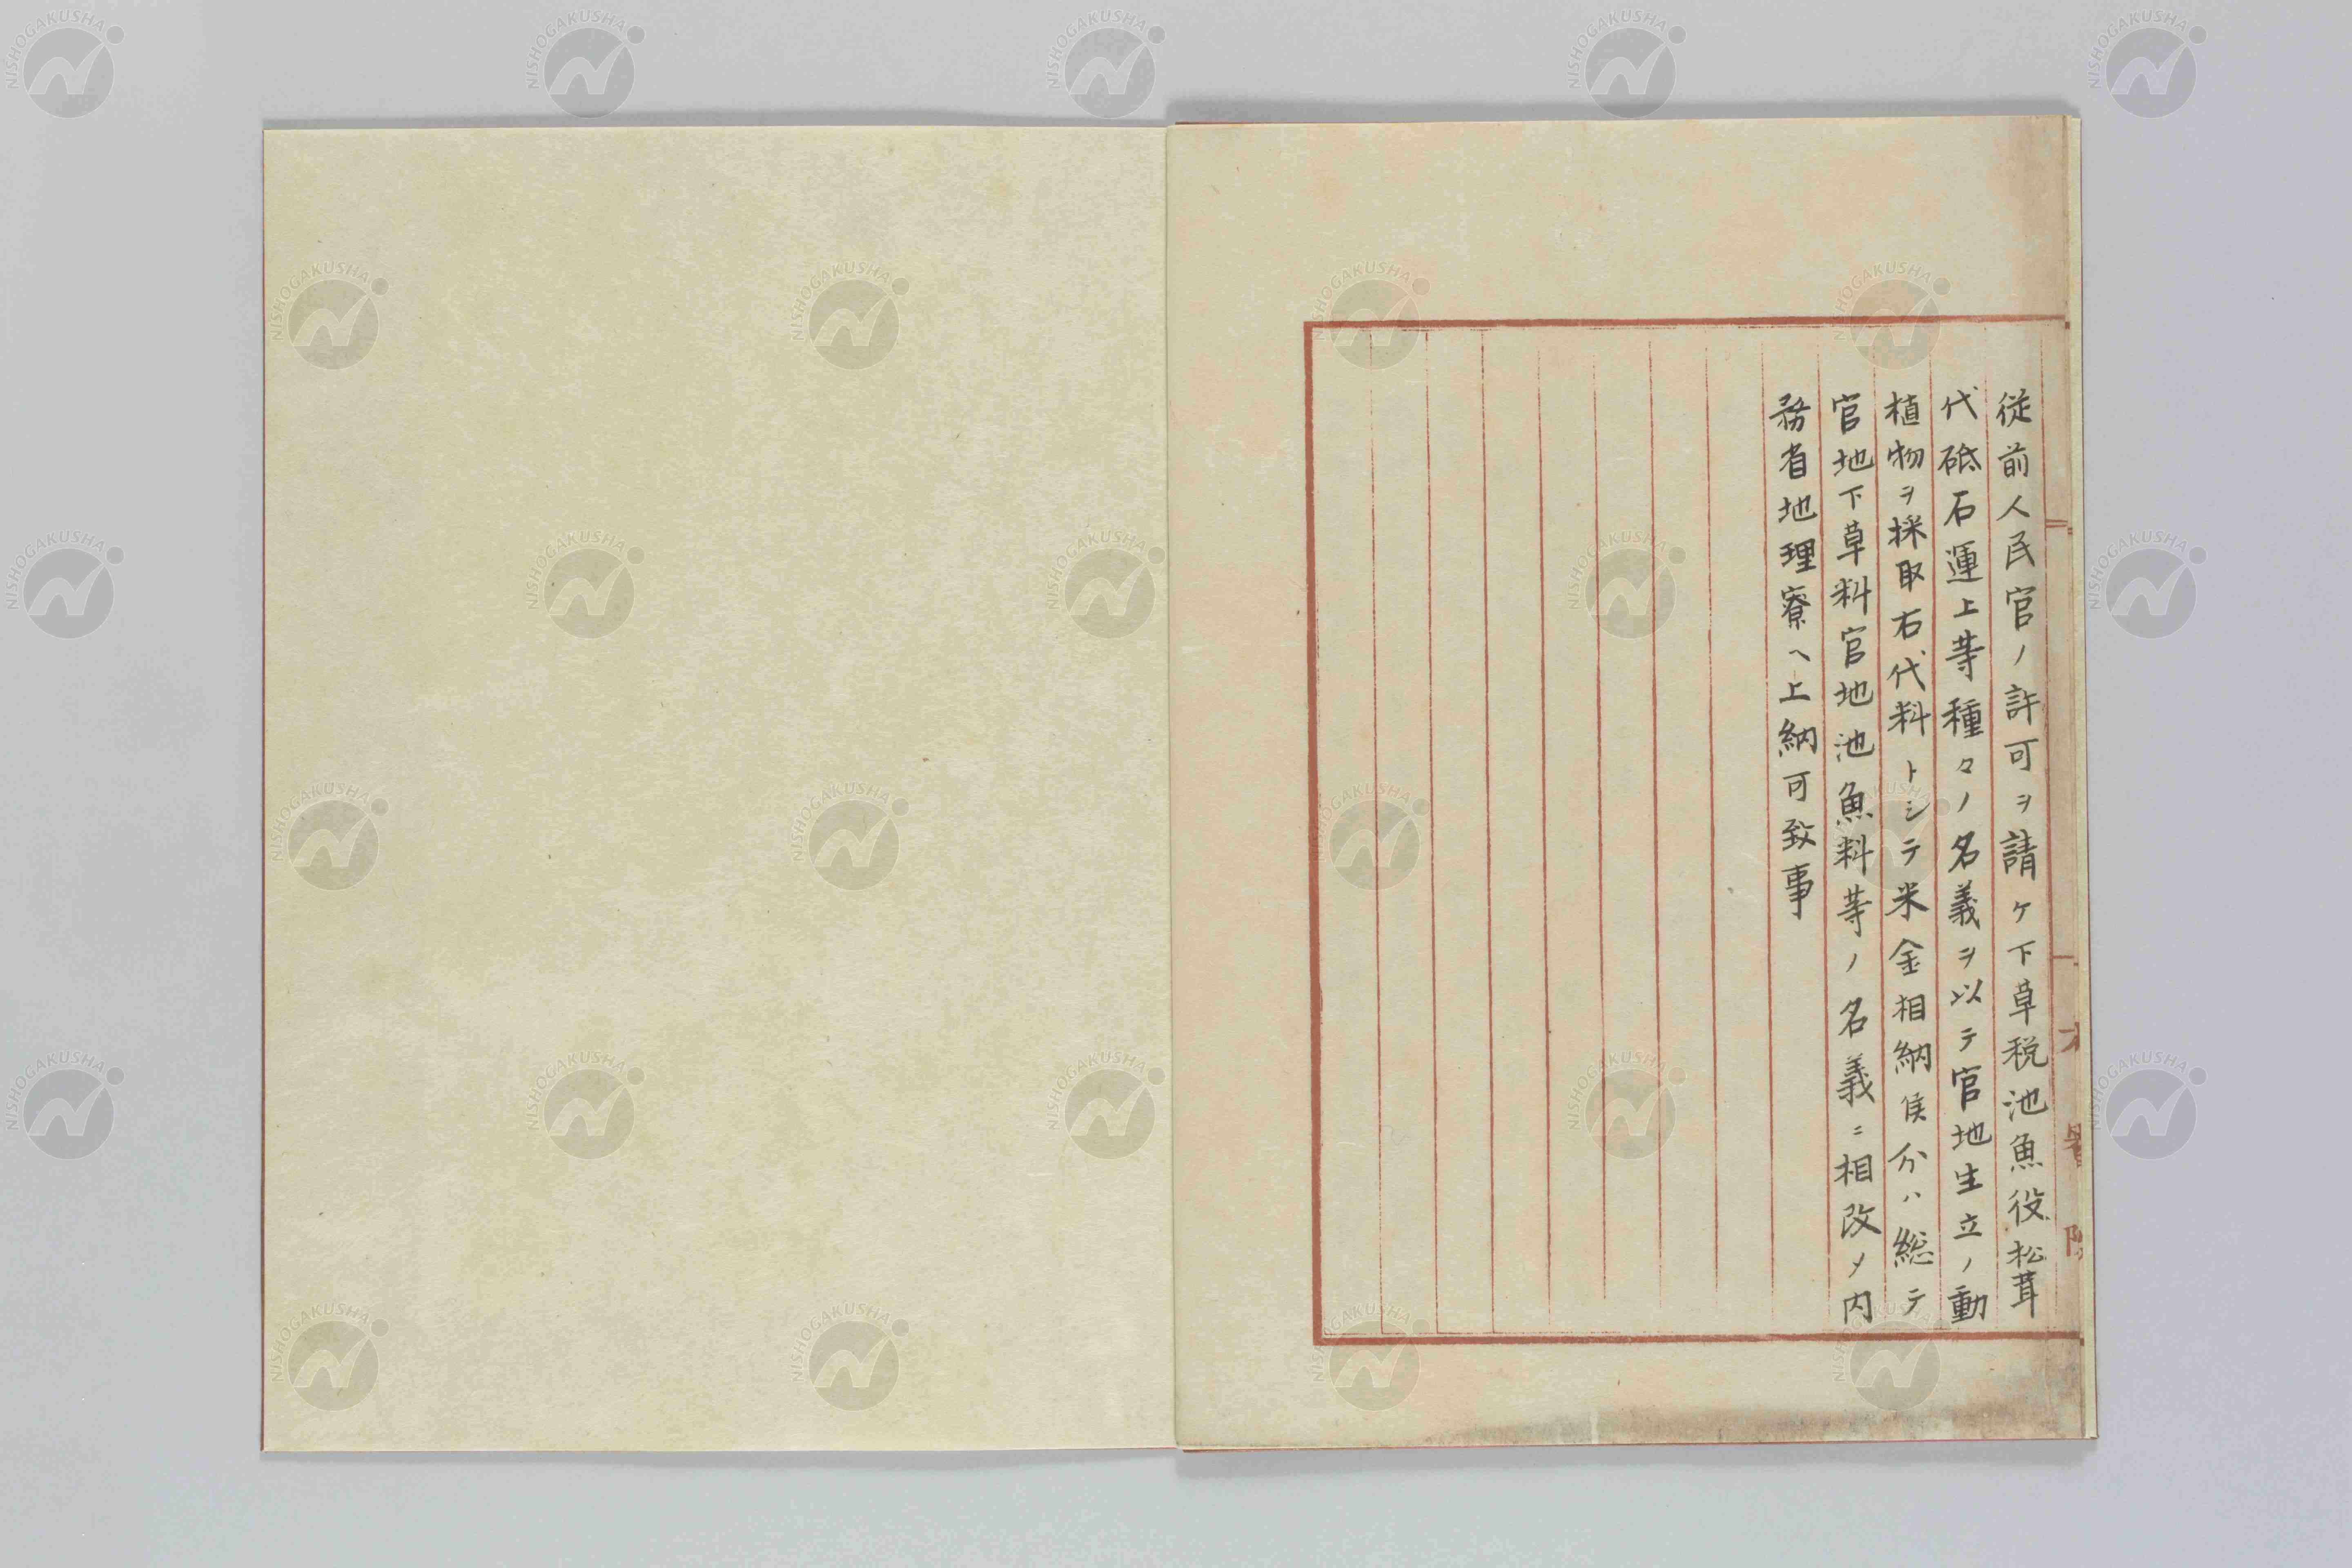 従前人民官ノ許可ヲ請ケ下草税池魚役松茸
代砥石運上等種々ノ名義ヲ以テ官地生立ノ動
植物ヲ採取右代料トシテ米金相納候分ハ総テ
官地下草料官地池魚料等ノ名義ニ相改メ内
務省地理寮ヘ上納可致事
NISHOGAKUSHA